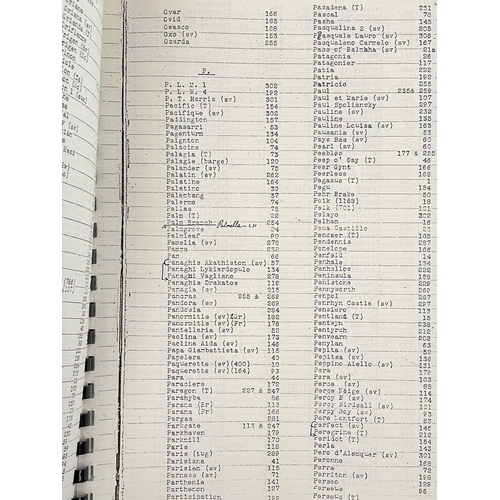 Ovar 166
Ovid 185
Owasco 188
Oxo (sv) 153
Ozarda 255
P.
P. L. M. 1 302
P. L. M. 4 192
P. T. Harris (sv) 302
Pacific (T) 154
Pacifique (sv) 302
Paddington 157
Pagasarri 53
Pagenturm 134
Paignton 104
Palacine 74
Palagia (T) 73
Palagie (barge) 120
Palander (sv) 58
Palatin (sv) 256
Palatine 164
Palatino 30
Palembang 37
Palermo 74
Pallas 75
Palm (T) 22
Palm Branch Palmella 254
Palmgrove 24
Palmleaf 90
Pamelia (sv) 278
Pampa 232
Pan 66
Panaghis Akathiston (sv) 57
Panaghi Lykiardopulo 134
Panaghi Vagliano 278
Panaghis Drakatos 116
Panagia (sv) 215
Pancras 255 & 269
Pandora (sv) 269
Pandosia 284
Panormitis (sv)(Gr) 182
Panormitis (sv)(Fr) 176
Pantellaria (sv) 52
Paolina (sv) 173
Paolina Aida (sv) 146
Papa Giambattista (sv) 115
Papelera 40
Paquerette (sv)(400) 10
Paquerette (sv)(164) 93
Para 44
Paraciers 172
Paragon (T) 227 & 247
Parahyba 86
Parana (Br) 113
Parana (Fr) 166
Pargas 281
Parkgate 113 & 247
Parkhaven 179
Parkmill 170
Paris 118
Paris (tug) 269
Parisiana 41
Parisien (sv) 109
Parnass (sv) 71
Parthenia 141
Parthenon 127
Participation 198
Pasadena (T) 231
Pascal 78
Pasha 148
Pasqualina S (sv) 205
Pasquale Lauro (sv) 306
Pasqualeno Carmelo (sv) 167
Passat (sv) 211
Patagonia 26
Patagonier 117
Patia 222
Patria 192
Patricio 255
Paul 235& 259
Paul et Marie (sv) 107
Paul Spoliansky 297
Pauline (sv) 232
Pauline 135
Pauline Louisa (sv) 163
Pausania (sv) 53
Pays Bas (sv) 60
Pearl (sv) 60
Peebles 177 & 285
Peep o' Day (T) 46
Peer Gynt 166
Peerless 168
Pegasus (T) 1
Pegu 154
Pehr Brahe 50
Peik (1168) 18
Peik (701) 121
Pelayo 302
Pelham 16
Pena Castillo 23
Pencaer (T) 105
Pendennis 287
Penelope 66
Penfeld 14
Penhale 134
Penhallow 222
Peninsula 158
Penistone 221
Pennyworth 269
Penpol 287
Penrhyn Castle (sv) 297
Pensiero 113
Pentland (T) 15
Pentwyn 238
Pentyrch 212
Penvearn 203
Penylan 63
Pepita (sv) 52
Pepitsa (sv) 138
Peppino Aiello (sv) 131
Pera 179
Pera (sv) 103
Perce (sv) 88
Perce Neige (sv) 111
Percy B (sv) 174
Percy Birdsall (sv) 101
Percy Roy (sv) 93
Pere Montfort (T) 63
Perfect (sv) 145
Peregrine (T) 212
Peridot (T) 154
Perla 64
Pero d'Alenquer (sv) 301
Peronne 163
Perriton (sv) 98
Perseus 121
Perseus 96